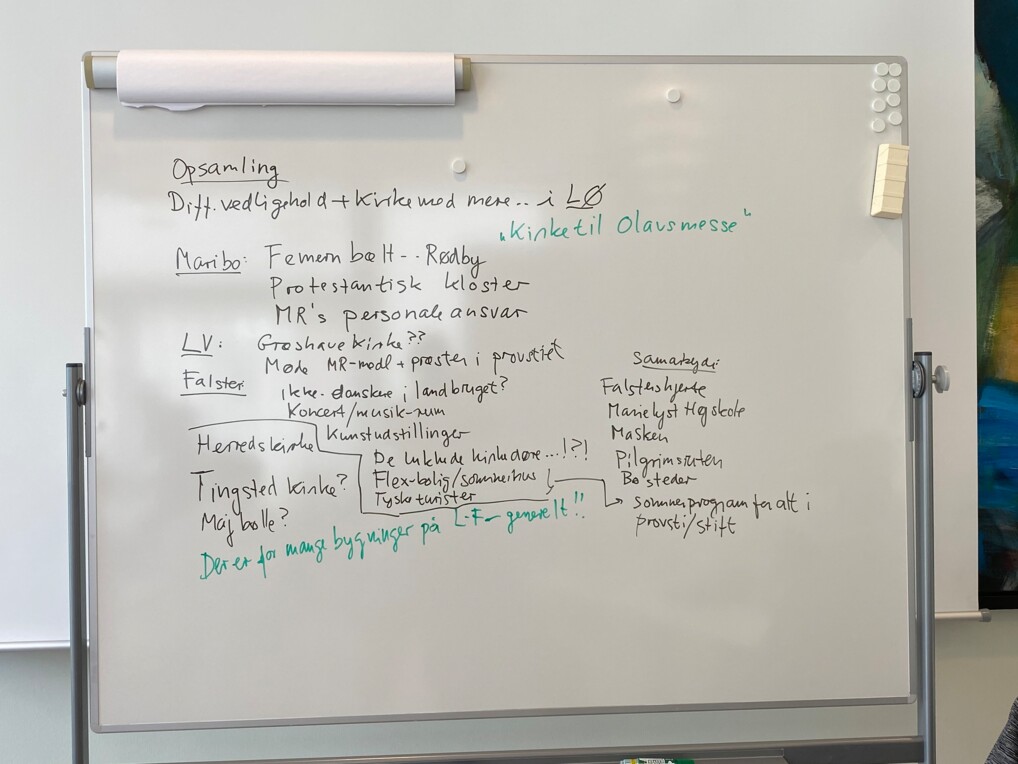 Opsamling
Diff. vedligehold + Kirke med mere.. i LØ
"Kirke til Olavsmesse"
Maribo: Femern bælt -- Rødby
Protestantisk kloster
MR's personaleansvar
LV: Græshave Kirke??
Møde MR-medl + præster i provstiet
Falster: Ikke-danskere i landbruget?
Koncert/musik-rum
Kunstudstillinger
Herredskirke
De lukkede kirkedøre...!?!
Flex-bolig/sommerhus
Tyske turister
Tingsted Kirke?
Majbølle?
Der er for mange bygninger på L-F- generelt!!
Samarbejde:
Falsters hjerte
Marielyst Højskole
Masken
Pilgrimsruten
Bosteder
Sommerprogram for alt i
provsti/stift